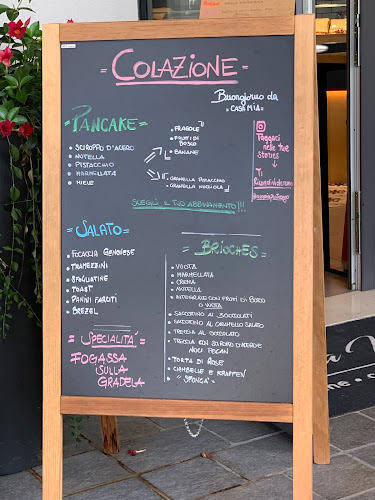 COLAZIONE
Buongiorno da
"CASA MIA"
PANCAKE
• SCIROPPO D'ACERO
• NUTELLA
• PISTACCHIO
• MARMELLATA
• MIELE
• FRAGOLE
• FRUTTI DI BOSCO
• BANANE
• GRANELLA PISTACCHIO
• GRANELLA NOCCIOLA
SCEGLI IL TUO ABBINAMENTO!!!
Taggaci
nelle tue
stories
Ti
SALATO
• FOCACCIA GENOVESE
• TRAMEZZINI
• SFOGLIATINE
• TOAST
• PANINI FARCITI
• BREZEL
SPECIALITA'
FOGASSA
SULLA
GRADELA
BRIOCHES
• VUOTA
• MARMELLATA
• CREMA
• NUTELLA
• INTEGRALE CON FRUTTI DI BOSCO
O VUOTA
• SACCOTTINO AI 3 CIOCCOLATI
• SACCOTTINO AL CARAMELLO SALATO
• TRECCIA AL CIOCCOLATO
• TRECCIA CON SCIROPPO D'ACERO E
NOCI PECAN
• TORTA DI ROSE
• CIAMBELLE E KRAPFEN